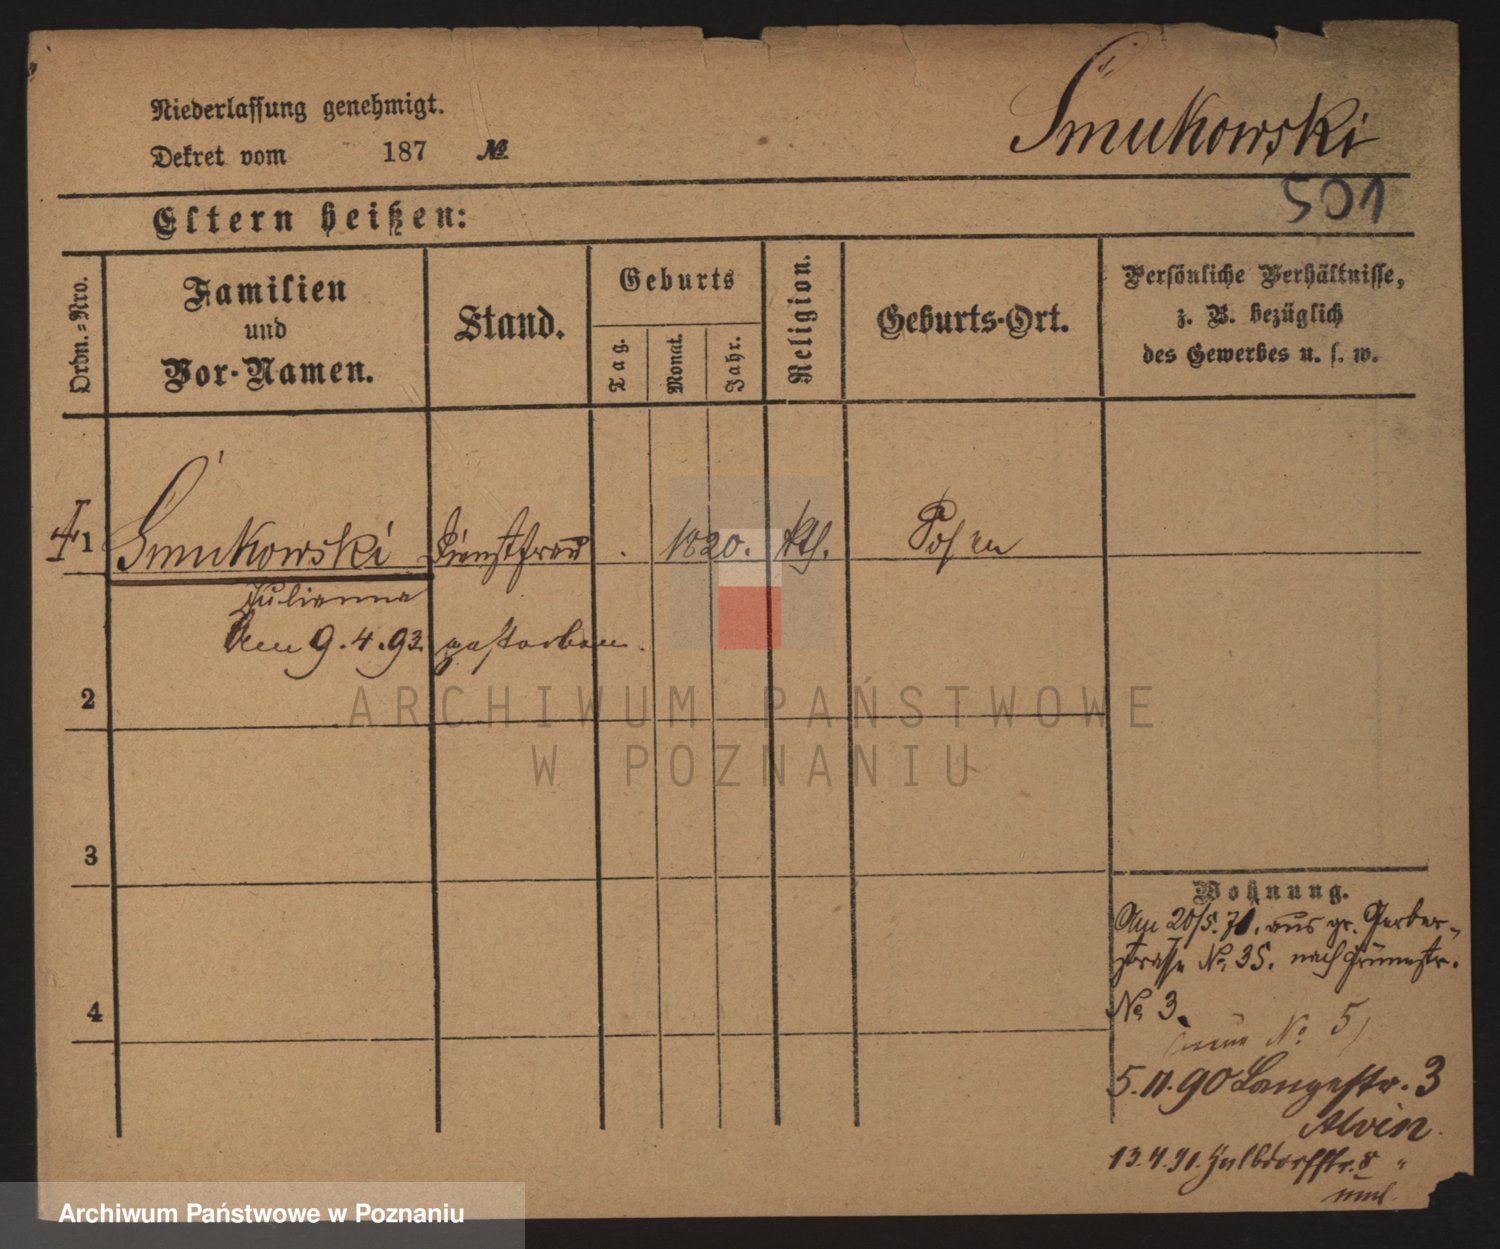 Niederlassung genehmigt.
Dekret vom 187 №
Śmukowski
501
Eltern heißen:
Ordn.-Nro.
Familien
und
Vor-Namen.
Stand.
Geburts
Tag.
Monat.
Jahr.
Religion.
Geburts-Ort.
Persönliche Verhältnisse,
z. B. bezüglich
des Gewerbes u. s. w.
1 Śmukowski Dienstfrau 1820. kth. Posen
Julianna
Am 9.4.93 gestorben.
2
3
4
ARCHIWUM PAŃSTWOWE
W POZNANIU
Wohnung.
Am 20/5. 71. aus gr. Gerber-
strasse No. 35. nach Grünestr.
No. 3.
(neue No 5)
5.11.90 Langestr. 3
Alvin.
13.4.91. Halbdorfstr. 8 "
Archiwum Państwowe w Poznaniu